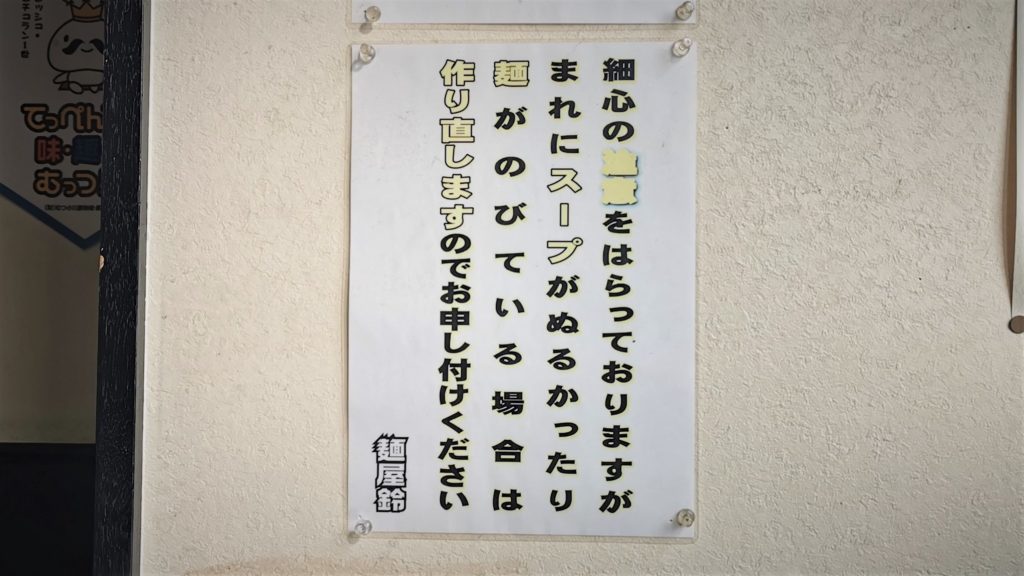 細心の注意をはらっておりますが
まれにスープがぬるかったり
麺がのびている場合は
作り直しますのでお申し付けください
麺屋鈴
てっぺん
味・麺
むっつ